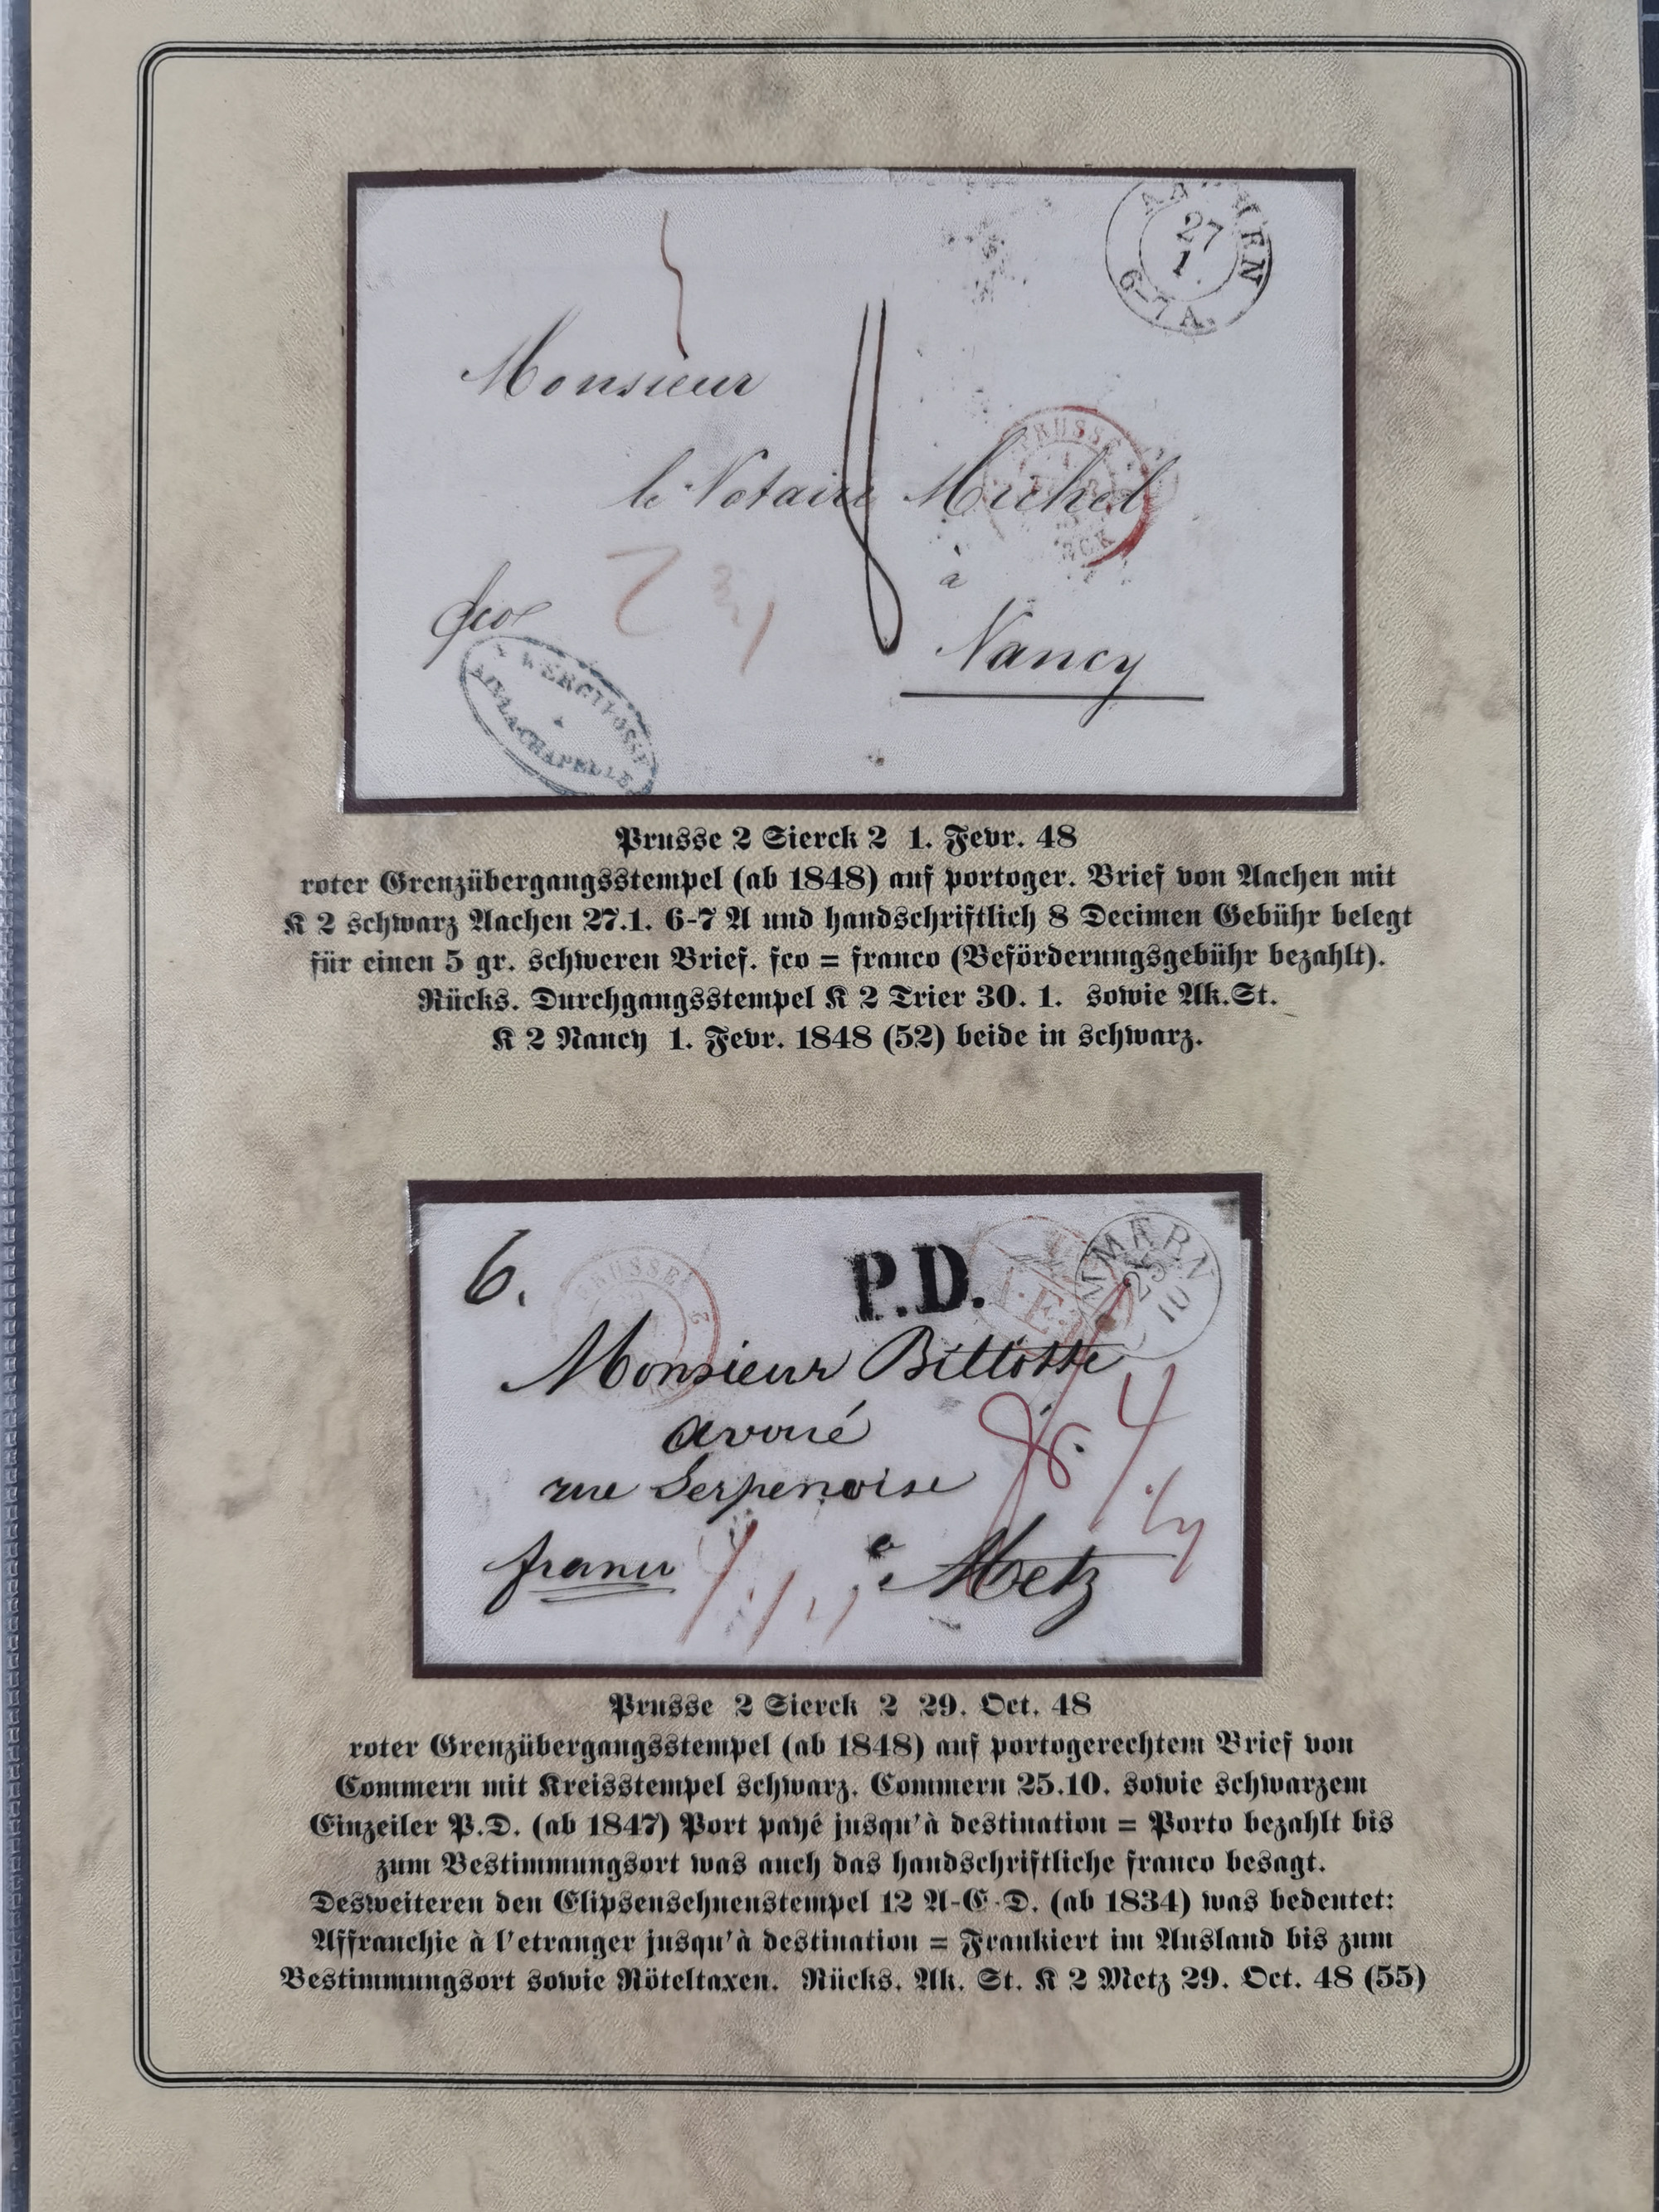 27
1.
6-7 A.
Monsieur
PRUSSE
le Notaire Michel
à
fco
Nancy
AIX-LA-CHAPELLE
Prusse 2 Sierck 2 1. Fevr. 48
roter Grenzübergangsstempel (ab 1848) auf portoger. Brief von Aachen mit
K 2 schwarz Aachen 27.1. 6-7 A und handschriftlich 8 Decimen Gebühr belegt
für einen 5 gr. schweren Brief. fco = franco (Beförderungsgebühr bezahlt).
Rücks. Durchgangsstempel K 2 Trier 30. 1. sowie Ak.St.
K 2 Nancy 1. Fevr. 1848 (52) beide in schwarz.
6.
PRUSSE 2
P.D.
25
10
Monsieur Billotte
avoué
rue Serpenoise
franco
à Metz
Prusse 2 Sierck 2 29. Oct. 48
roter Grenzübergangsstempel (ab 1848) auf portogerechtem Brief von
Commern mit Kreisstempel schwarz. Commern 25.10. sowie schwarzem
Einzeiler P.D. (ab 1847) Port payé jusqu'à destination = Porto bezahlt bis
zum Bestimmungsort was auch das handschriftliche franco besagt.
Desweiteren den Elipsensehnenstempel 12 A-E-D. (ab 1834) was bedeutet:
Affranchie à l'etranger jusqu'à destination = Frankiert im Ausland bis zum
Bestimmungsort sowie Röteltaxen. Rücks. Ak. St. K 2 Metz 29. Oct. 48 (55)